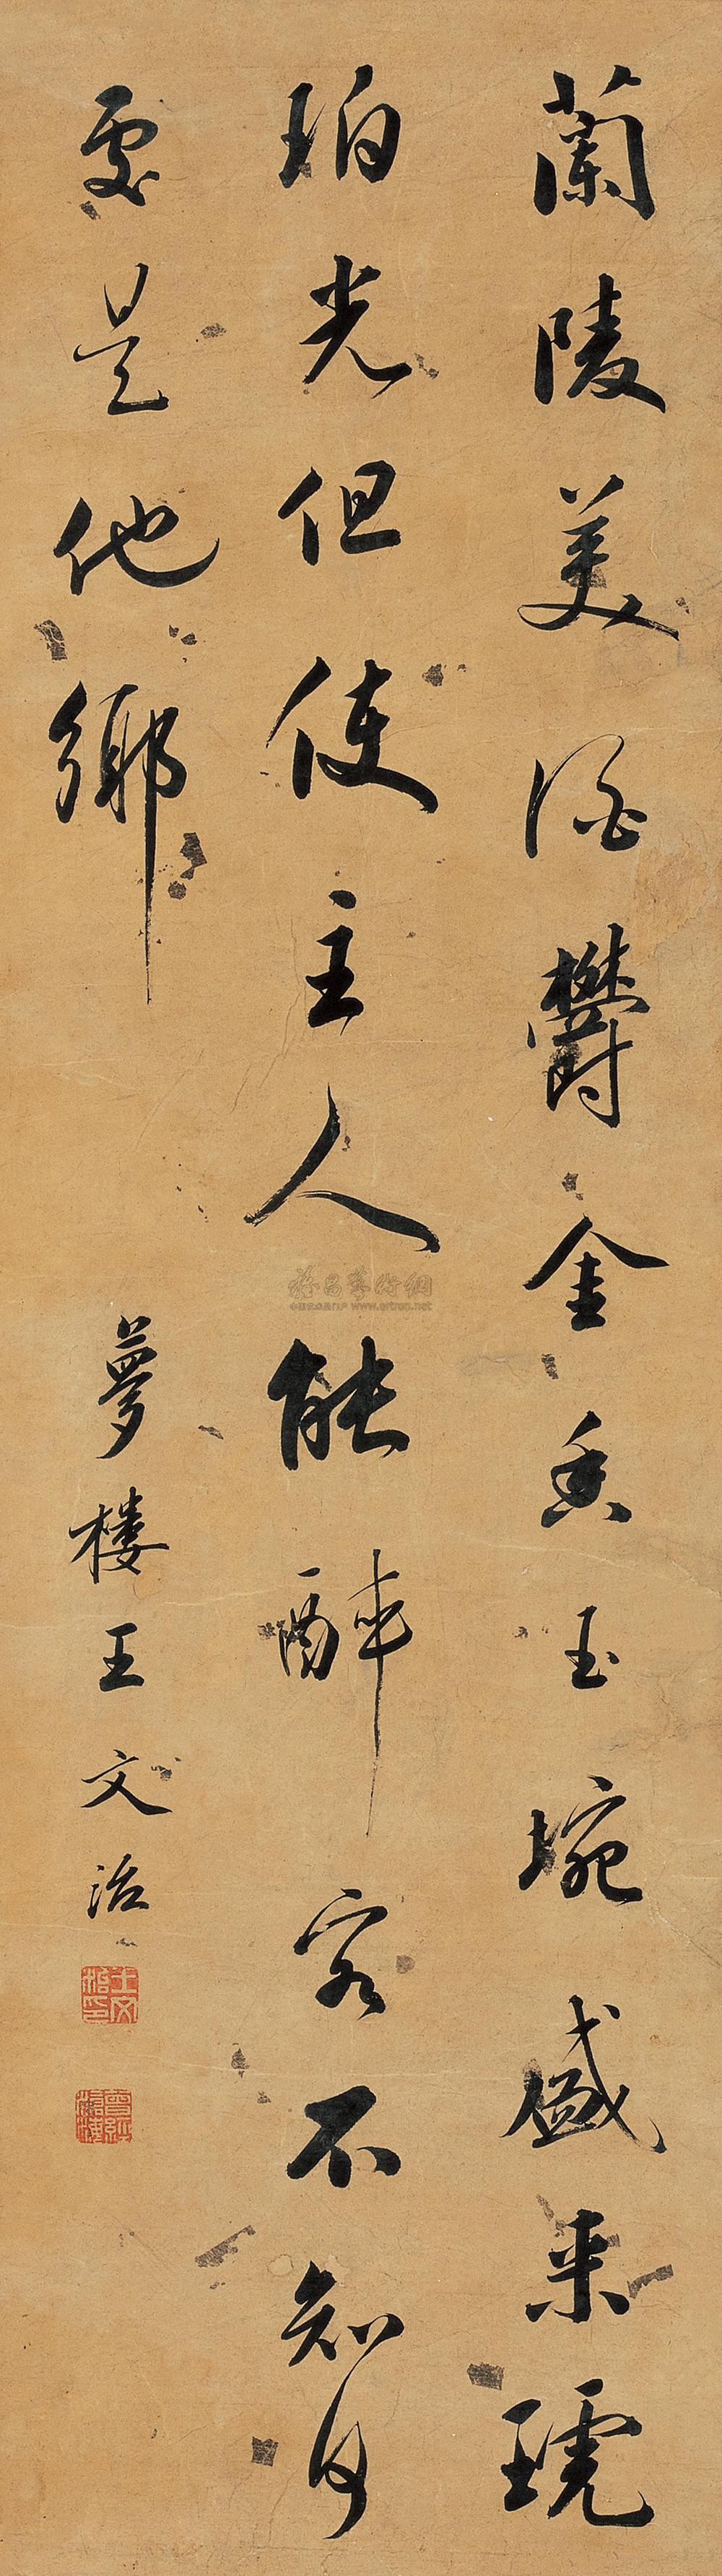 蘭陵美酒鬱金香玉埦盛来琥
珀光但使主人能醉客不知何
處是他鄉
夢樓王文治
王文治印
www.artron.net